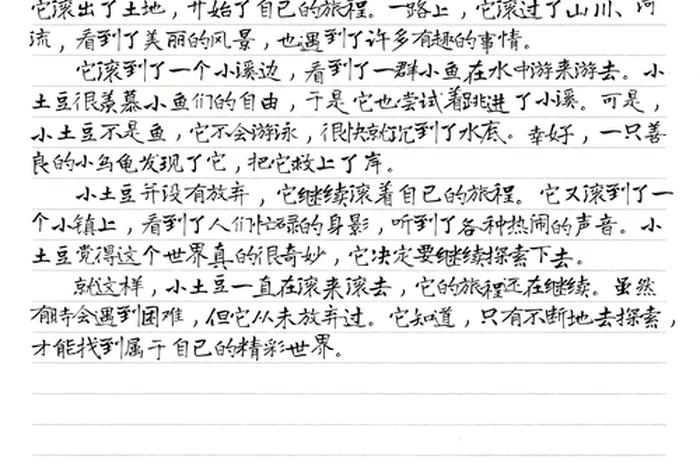 它滚出了土地，开始了自己的旅程。一路上，它滚过了山川、河
流，看到了美丽的风景，也遇到了许多有趣的事情。
它滚到了一个小溪边，看到了一群小鱼在水中游来游去。小
土豆很羡慕小鱼们的自由，于是它也尝试着跳进了小溪。可是，
小土豆不是鱼，它不会游泳，很快就沉到了水底。幸好，一只善
良的小乌龟发现了它，把它救上了岸。
小土豆并没有放弃，它继续滚着自己的旅程。它又滚到了一
个小镇上，看到了人们忙碌的身影，听到了各种热闹的声音。小
土豆觉得这个世界真的很奇妙，它决定要继续探索下去。
就这样，小土豆一直在滚来滚去，它的旅程还在继续。虽然
有时会遇到困难，但它从未放弃过。它知道，只有不断地去探索，
才能找到属于自己的精彩世界。